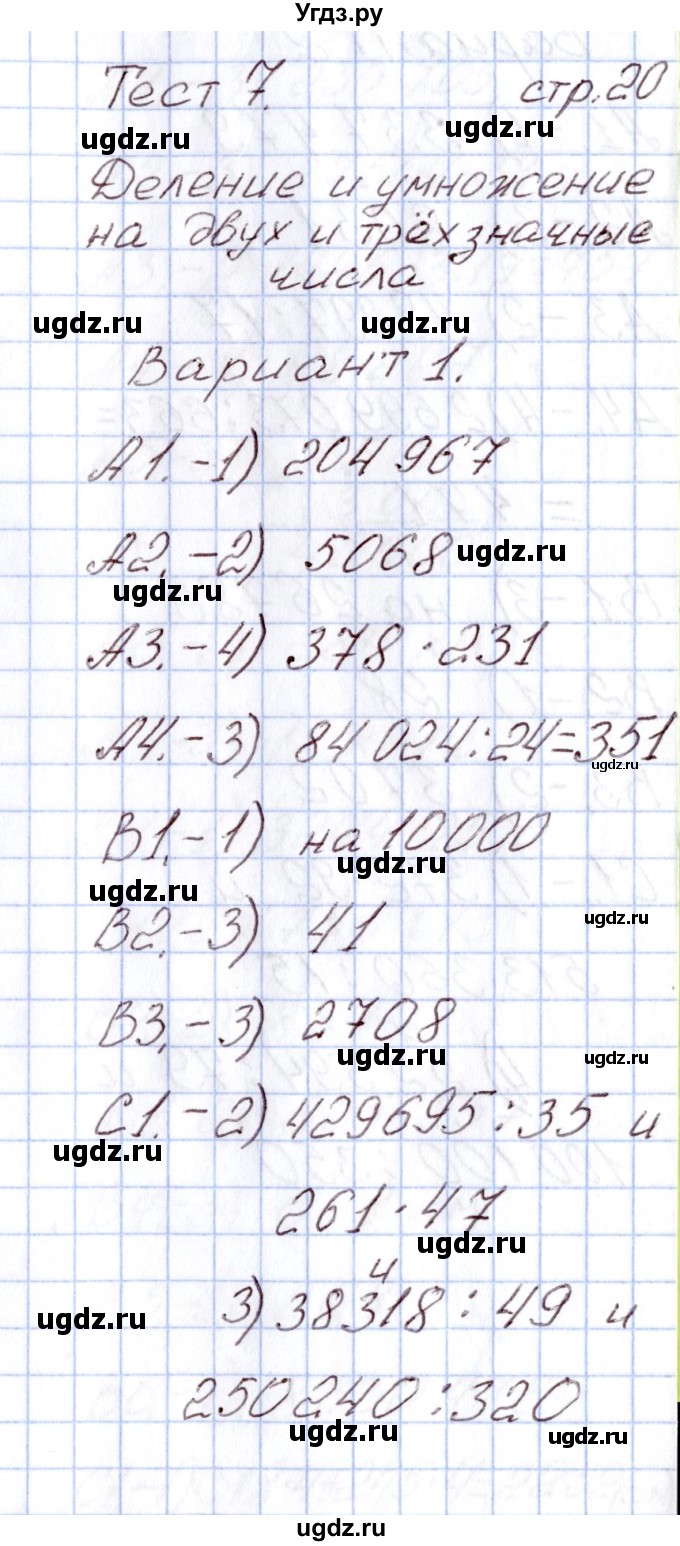 Угдз.ру
Тест 7. стр. 20
ugdz.ru ugdz.ru
Деление и умножение
на двух и трёхзначные
числа
ugdz.ru ugdz.ru
Вариант 1.
А1. - 1) 204 967
А2. - 2) 5068 ugdz.ru
ugdz.ru
А3. - 4) 378 · 231
А4. - 3) 84 024 : 24 = 351
ugdz.ru
В1. - 1) на 10000
ugdz.ru
ugdz.ru
В2. - 3) 41 ugdz.ru
В3. - 3) 2708
ugdz.ru ugdz.ru
С1. - 2) 429695 : 35 и
ugdz.ru
261 · 47
ugdz.ru
и
3) 38318 : 49 и
ugdz.ru
250240 : 320
ugdz.ru ugdz.ru
ugdz.ru